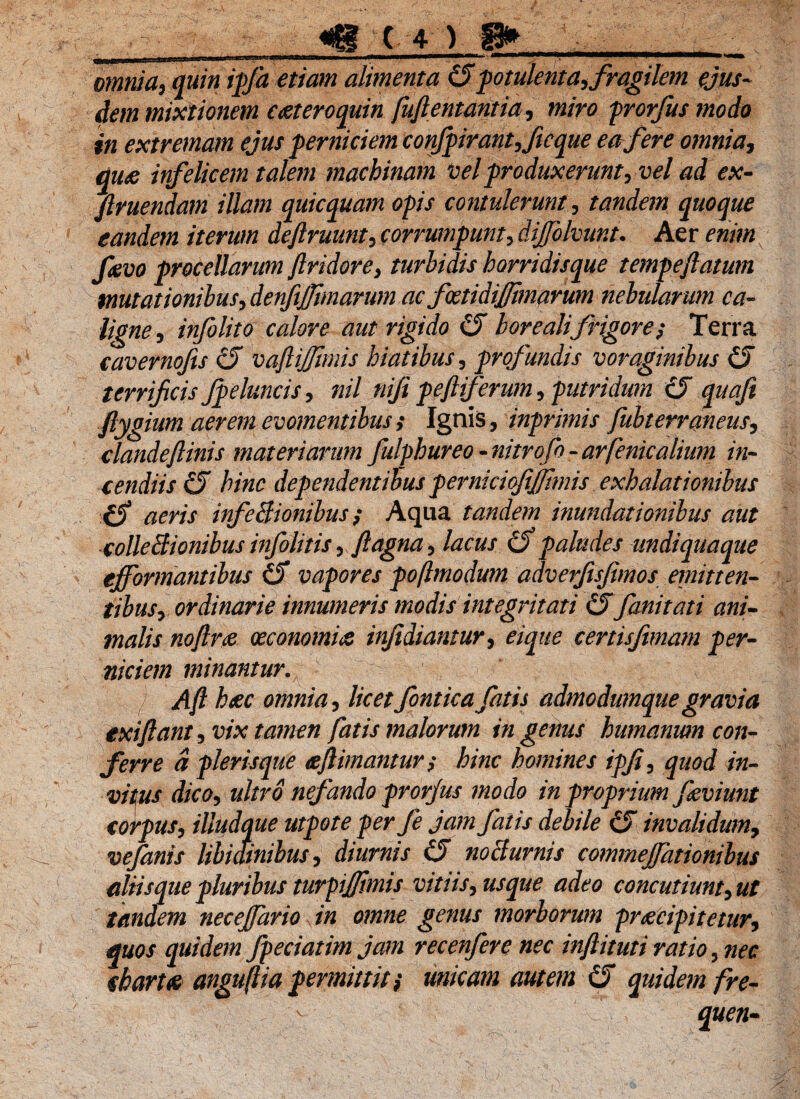 ( 4 )
omnia, quin ipſa etiam alimenta & potulenta, fragilem ejus-
dem mixtionem cæteroquin ſuſtentantia, miro prorſus modo
in extremam ejus perniciem conſpirant, ſicque ea fere omnia,
quæ infelicem talem machinam vel produxerunt, vel ad ex-
ſtruendam illam quicquam opis contulerunt, tandem quoque
eandem iterum deſtruunt, corrumpunt, diſſolvunt. Aer enim
ſævo procellarum ſtridore, turbidis horridisque tempeſtatum
mutationibus, denſiſſimarum ac fœtidiſſimarum nebularum ca-
ligne, inſolito calore aut rigido & boreali frigore; Terra
cavernoſis & vaſtiſſimis hiatibus, profundis voraginibus &
terrificis ſpeluncis, nil niſi peſtiferum, putridum & quaſi
ſtygium aerem evomentibus; Ignis, inprimis ſubterraneus,
clandeſtinis materiarum ſulphureo-nitroſo-arſenicalium in-
cendiis & hinc dependentibus pernicioſiſſimis exhalationibus
& aeris infectionibus; Aqua tandem inundationibus aut
collectionibus inſolitis, ſtagna, lacus & paludes undiquaque
efformantibus & vapores poſtmodum adverſisſimos emitten-
tibus, ordinarie innumeris modis integritati & ſanitati ani-
malis noſtræ œconomiæ inſidiantur, eique certisſimam per-
niciem minantur.
Aſt hæc omnia, licet ſontica ſatis admodumque gravia
exiſtant, vix tamen ſatis malorum in genus humanum con-
ferre à plerisque æſtimantur; hinc homines ipſi, quod in-
vitus dico, ultrò nefando prorſus modo in proprium ſæviunt
corpus, illudque utpote per ſe jam ſatis debile & invalidum,
veſanis libidinibus, diurnis & nocturnis commeſſationibus
aliisque pluribus turpiſſimis vitiis, usque adeo concutiunt, ut
tandem neceſſario in omne genus morborum præcipitetur,
quos quidem ſpeciatim jam recenſere nec inſtituti ratio, nec
chartæ anguſtia permittit; unicam autem & quidem fre-
quen-